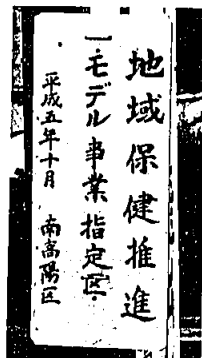 地域保健推進
モデル事業指定区
平成五年十月　南高陽区